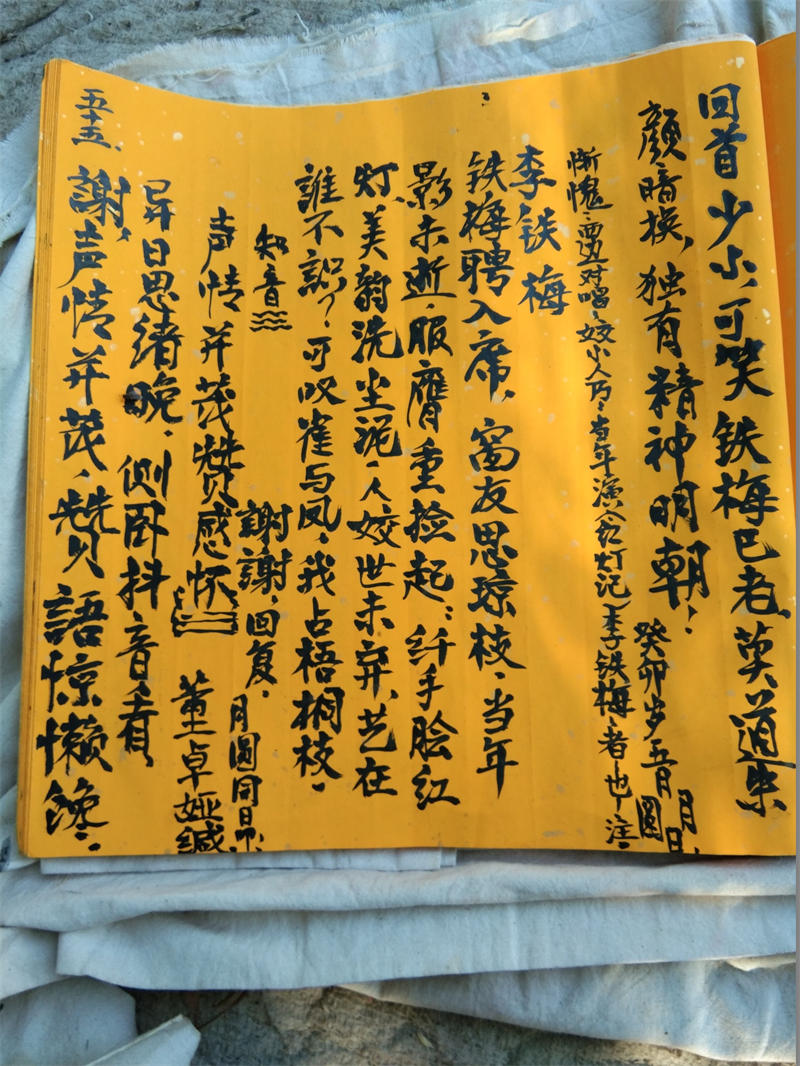 回首少小,可笑铁梅已老,莫道朱
颜暗换,独有精神明朝.
癸卯岁五月圆月日.
惭愧:对唱,姣小人乃:当年演《红灯记》李铁梅者也,注.
李铁梅
铁梅聘入席,窗友思琼枝.当年
影未逝.服膺重捡起:纤手脸红
灯,美韵洗尘泥.人姣世未弃,艺在
誰不説,可叹雀与凤.我占梧桐枝.
知音
謝謝,回复,月圆同日.
声情并茂赞感怀
董卓娅缄
异日思绪晚.侧卧抖音看
五十五、謝,声情并茂,赞語惊懒馋.